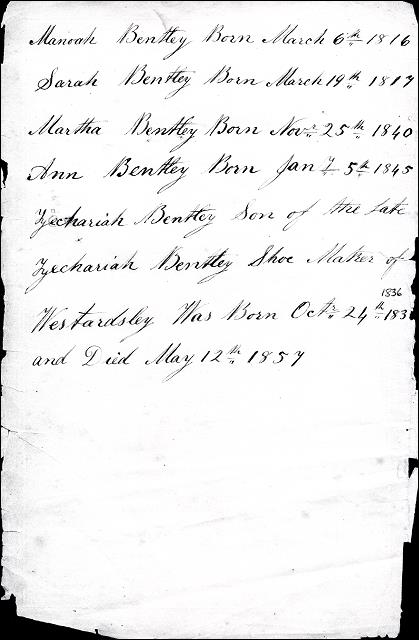 Manoah Bentley Born March 6th 1816
Sarah Bentley Born March 19th 1817
Martha Bentley Born Novr 25th 1840
Ann Bentley Born Jany 5th 1845
Zechariah Bentley Son of the Late
Zechariah Bentley Shoe Maker of
1836
Westardsley Was Born Octr 24th 183
and Died May 12th 1857